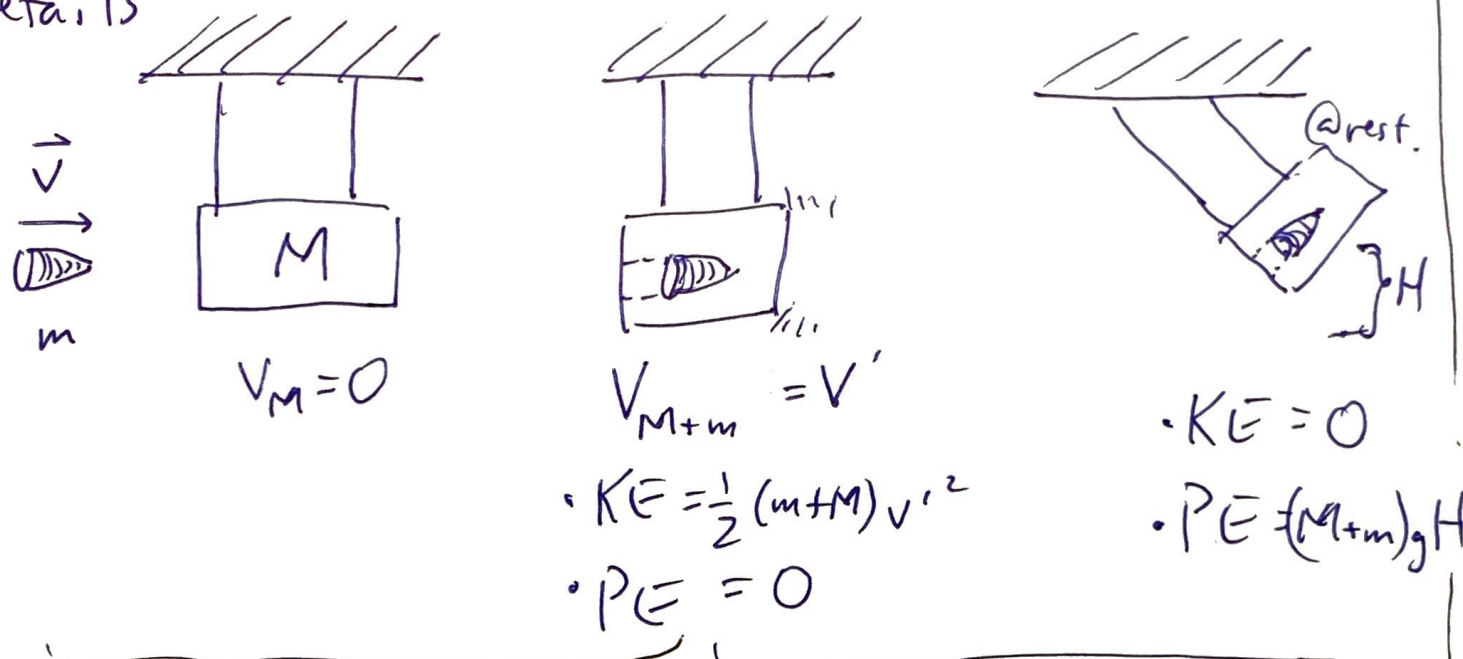 etails
V
m
M
V_M = 0
V_{M+m} = V'
· KE = 1/2 (m+M) v'^2
· PE = 0
@rest.
H
· KE = 0
· PE = (M+m)gH